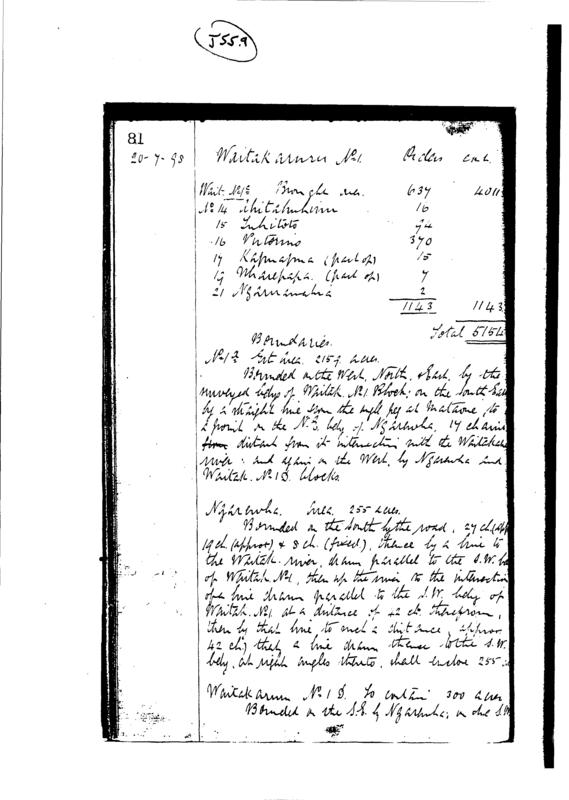 J55.9
81
20-7-98 Waitakaruru No 1. Orders
Wait. No 1 637 4011
No 14 16
15 94
16 370
17 Kapuapua (part of) 15
19 Wharepapa. (part of) 7
21 Ngaruamahia 2
1143 1143
Total 5154
Boundaries.
No 1 area. 2159 acres.
Bounded on the West, North, & East, by the
surveyed bdys of Waitak. No 1 Block; on the South East
by a straight line from the peg at Mataone, to
a point on the bdy of Ngarewha, 17 chains
from distant from its intersection with the Waitakaru
river; and again on the West, by Ngarewha and
Waitak. No 1 D. blocks.
Ngarewha. Area. 255 acres.
Bounded on the South by the road, 27 ch (app
19 ch (approx) & 8 ch. (fixed), thence by a line to
the Waitak. river, drawn parallel to the S.W. bd
of Waitak No 1, then up the river to the intersection
of a line drawn parallel to the S.W. bdy of
Waitak. No 1 at a distance of 42 ch therefrom,
then by that line to such a distance, approx
42 ch) that, a line drawn thence to the S.W.
bdy, at right angles thereto, shall enclose 255
Waitakaruru No 1 D. To contain 300 acres
Bounded on the S.E. by Ngarewha; on the S.W